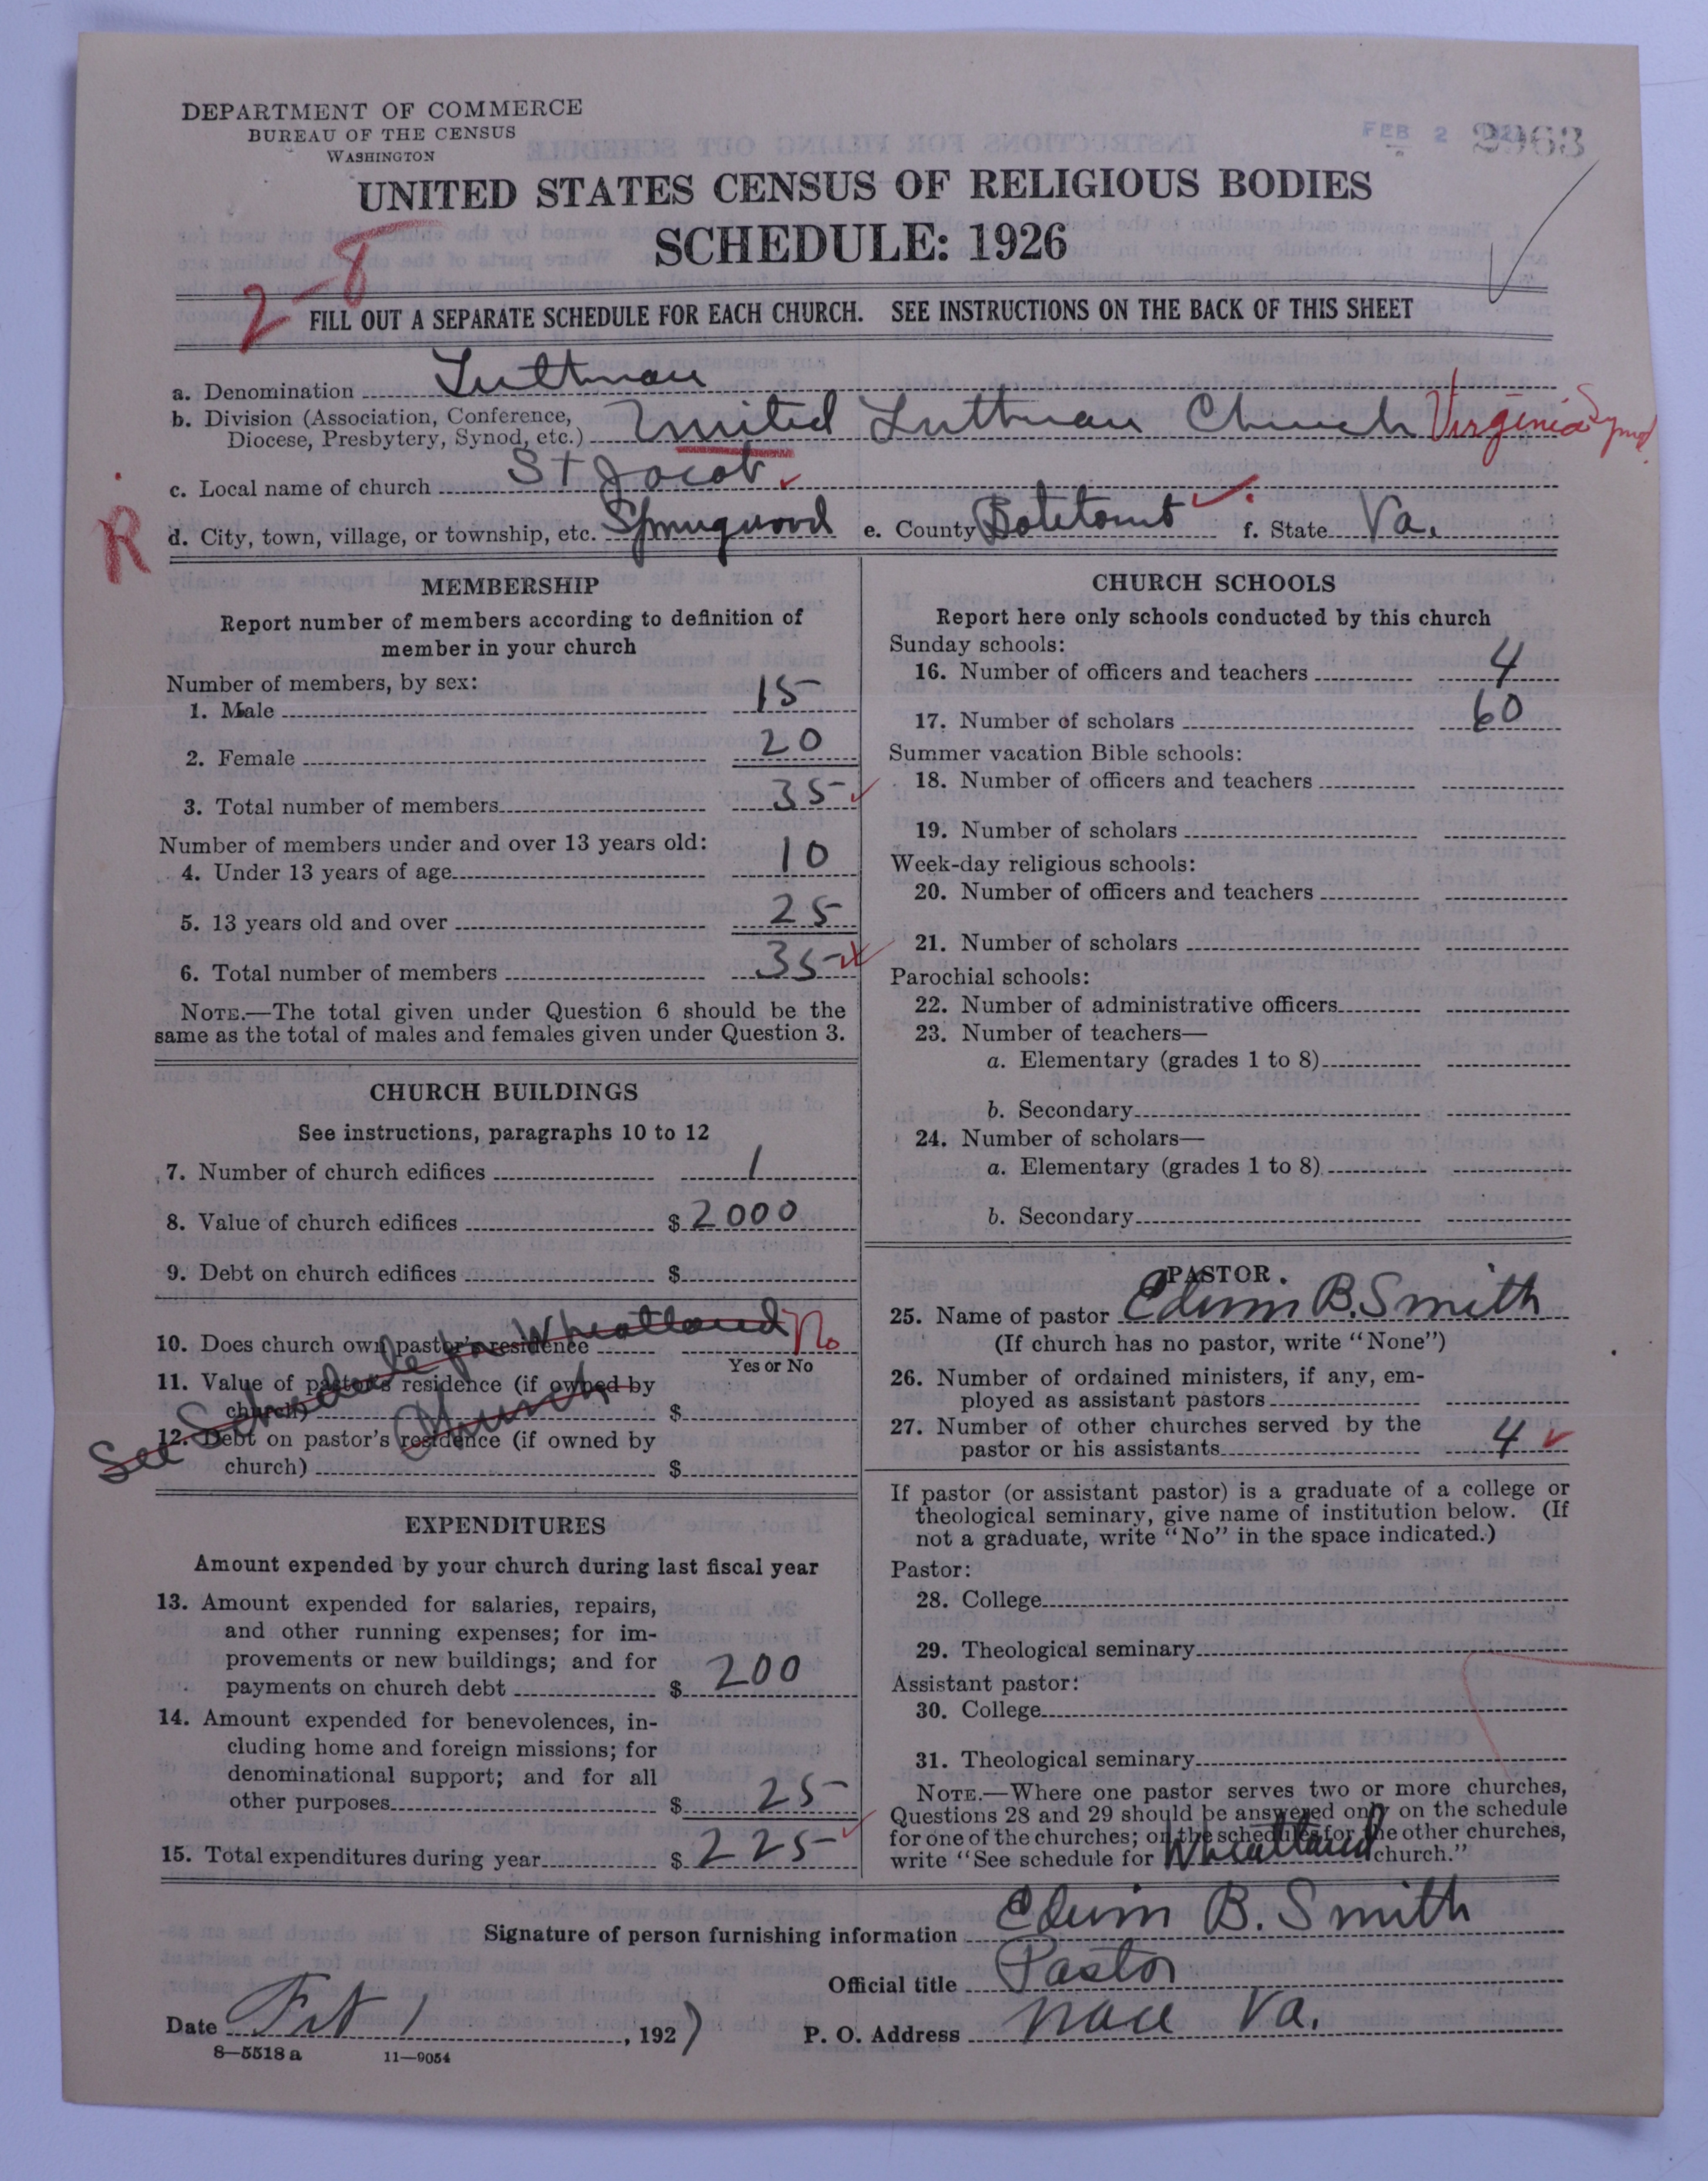 DEPARTMENT OF COMMERCE
BUREAU OF THE CENSUS
WASHINGTON
FEB 2
2963
UNITED STATES CENSUS OF RELIGIOUS BODIES
SCHEDULE: 1926
2-8
FILL OUT A SEPARATE SCHEDULE FOR EACH CHURCH. SEE INSTRUCTIONS ON THE BACK OF THIS SHEET
a. Denomination Lutheran
b. Division (Association, Conference, Diocese, Presbytery, Synod, etc.) United Lutheran Church Virginia Synd
c. Local name of church St Jacob
R
d. City, town, village, or township, etc. Springwood e. County Botetourt f. State Va.
MEMBERSHIP
Report number of members according to definition of
member in your church
Number of members, by sex:
1. Male 15
2. Female 20
3. Total number of members 35
Number of members under and over 13 years old:
4. Under 13 years of age 10
5. 13 years old and over 25
6. Total number of members 35
NOTE.—The total given under Question 6 should be the
same as the total of males and females given under Question 3.
CHURCH BUILDINGS
See instructions, paragraphs 10 to 12
7. Number of church edifices 1
8. Value of church edifices $ 2000
9. Debt on church edifices $
10. Does church own pastor's residence No
Yes or No
11. Value of pastor's residence (if owned by
church) $
12. Debt on pastor's residence (if owned by
church) $
See Schedule for Wheatland
Church
EXPENDITURES
Amount expended by your church during last fiscal year
13. Amount expended for salaries, repairs,
and other running expenses; for im-
provements or new buildings; and for
payments on church debt $ 200
14. Amount expended for benevolences, in-
cluding home and foreign missions; for
denominational support; and for all
other purposes $ 25
15. Total expenditures during year $ 225
CHURCH SCHOOLS
Report here only schools conducted by this church
Sunday schools:
16. Number of officers and teachers 4
17. Number of scholars 60
Summer vacation Bible schools:
18. Number of officers and teachers
19. Number of scholars
Week-day religious schools:
20. Number of officers and teachers
21. Number of scholars
Parochial schools:
22. Number of administrative officers
23. Number of teachers—
a. Elementary (grades 1 to 8)
b. Secondary
24. Number of scholars—
a. Elementary (grades 1 to 8)
b. Secondary
PASTOR
25. Name of pastor Edwin B. Smith
(If church has no pastor, write "None")
26. Number of ordained ministers, if any, em-
ployed as assistant pastors
27. Number of other churches served by the
pastor or his assistants 4
If pastor (or assistant pastor) is a graduate of a college or
theological seminary, give name of institution below. (If
not a graduate, write "No" in the space indicated.)
Pastor:
28. College
29. Theological seminary
Assistant pastor:
30. College
31. Theological seminary
NOTE.—Where one pastor serves two or more churches,
Questions 28 and 29 should be answered only on the schedule
for one of the churches; on the schedules for the other churches,
write "See schedule for Wheatland church."
Signature of person furnishing information Edwin B. Smith
Official title Pastor
Date Feb 1, 1927 P. O. Address Nace Va.
8—5518 a 11—9054